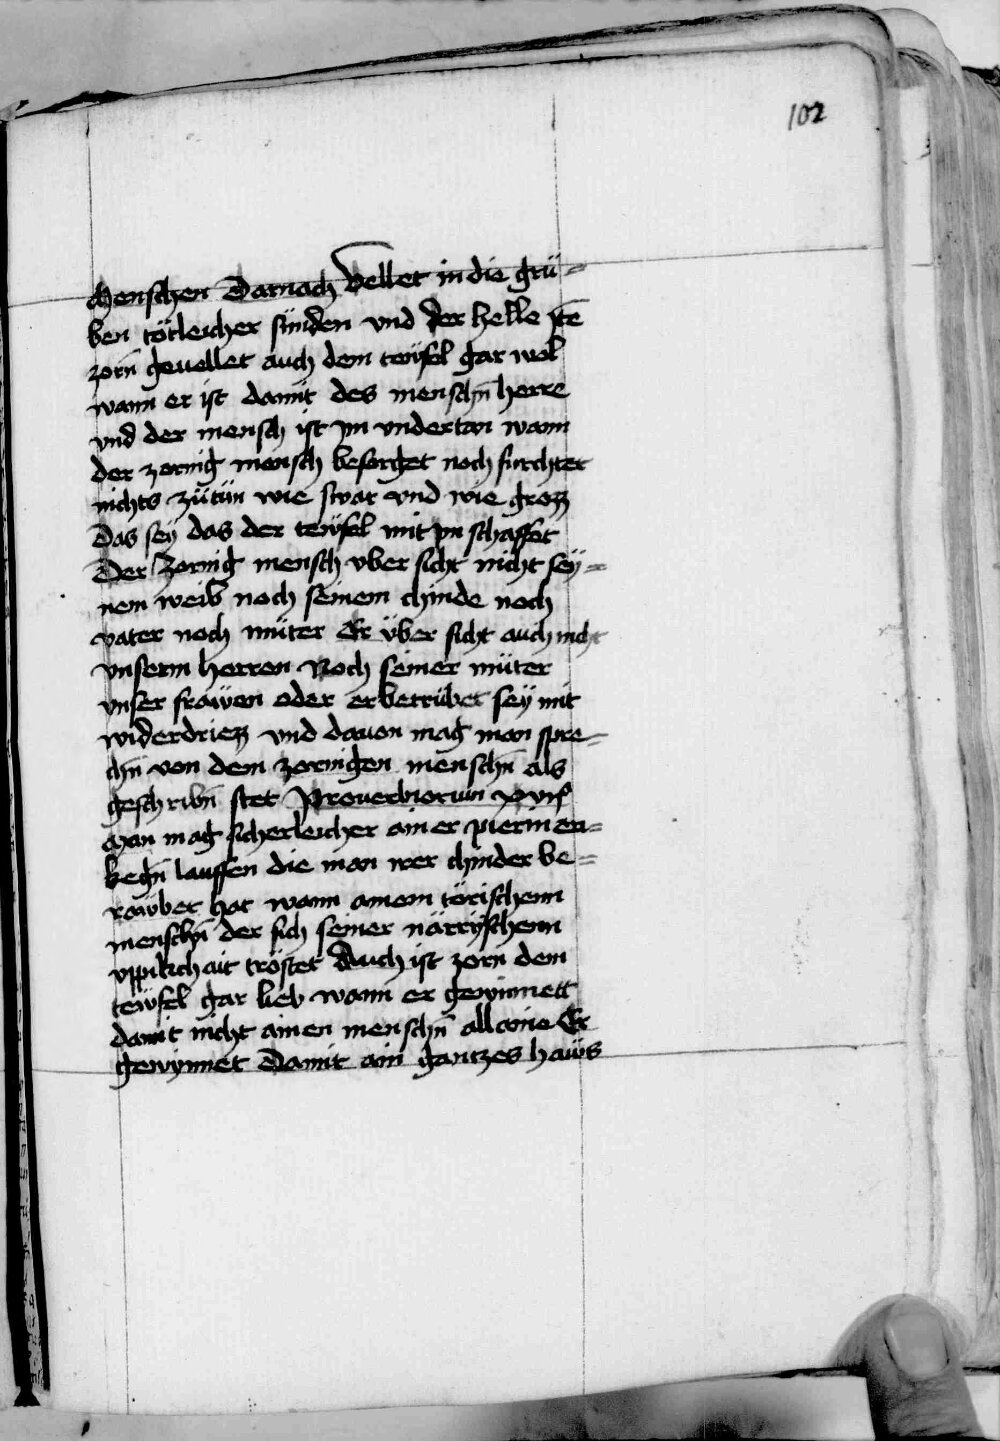 102
Menschen Darnach vellet in die grü=
ben tötleicher sünden vnd der helle Itē
zorn̄ geuellet auch dem teüfel gar wol
wann er ist damit des menschn̄ herre
vnd der mensch ist ym vndertan wann
der zornig mensch besorget noch furchtet
nichts zütün wie swar vnd wie grozz
Das sey das der teüfel mit ym schaffet
Der zornig mensch vber sicht nicht sey=
nem weib noch seinem chinde noch
vater noch müter Er über sicht auch nicht
vnserm herren Noch seiner müter
vnser frawen oder er betrübet sey mit
widerdriezz vnd dauon mag man spre=
chn̄ von dem zornigen menschn̄ als
geschribn̄ stet Prouerbiorum xvij
Man mag sicherleicher ainer pierinen=
kegn̄ lauffen die man irer chinder be=
raubet hat wann ainem törischenn
menschn̄ der sich seiner närryschenn
vppikchait tröstet Auch ist zorn dem
teüfel gar lieb wann er gewinnett
damit nicht ainen menschn̄ allaine Er
gewynnet Damit ain gantzes haws